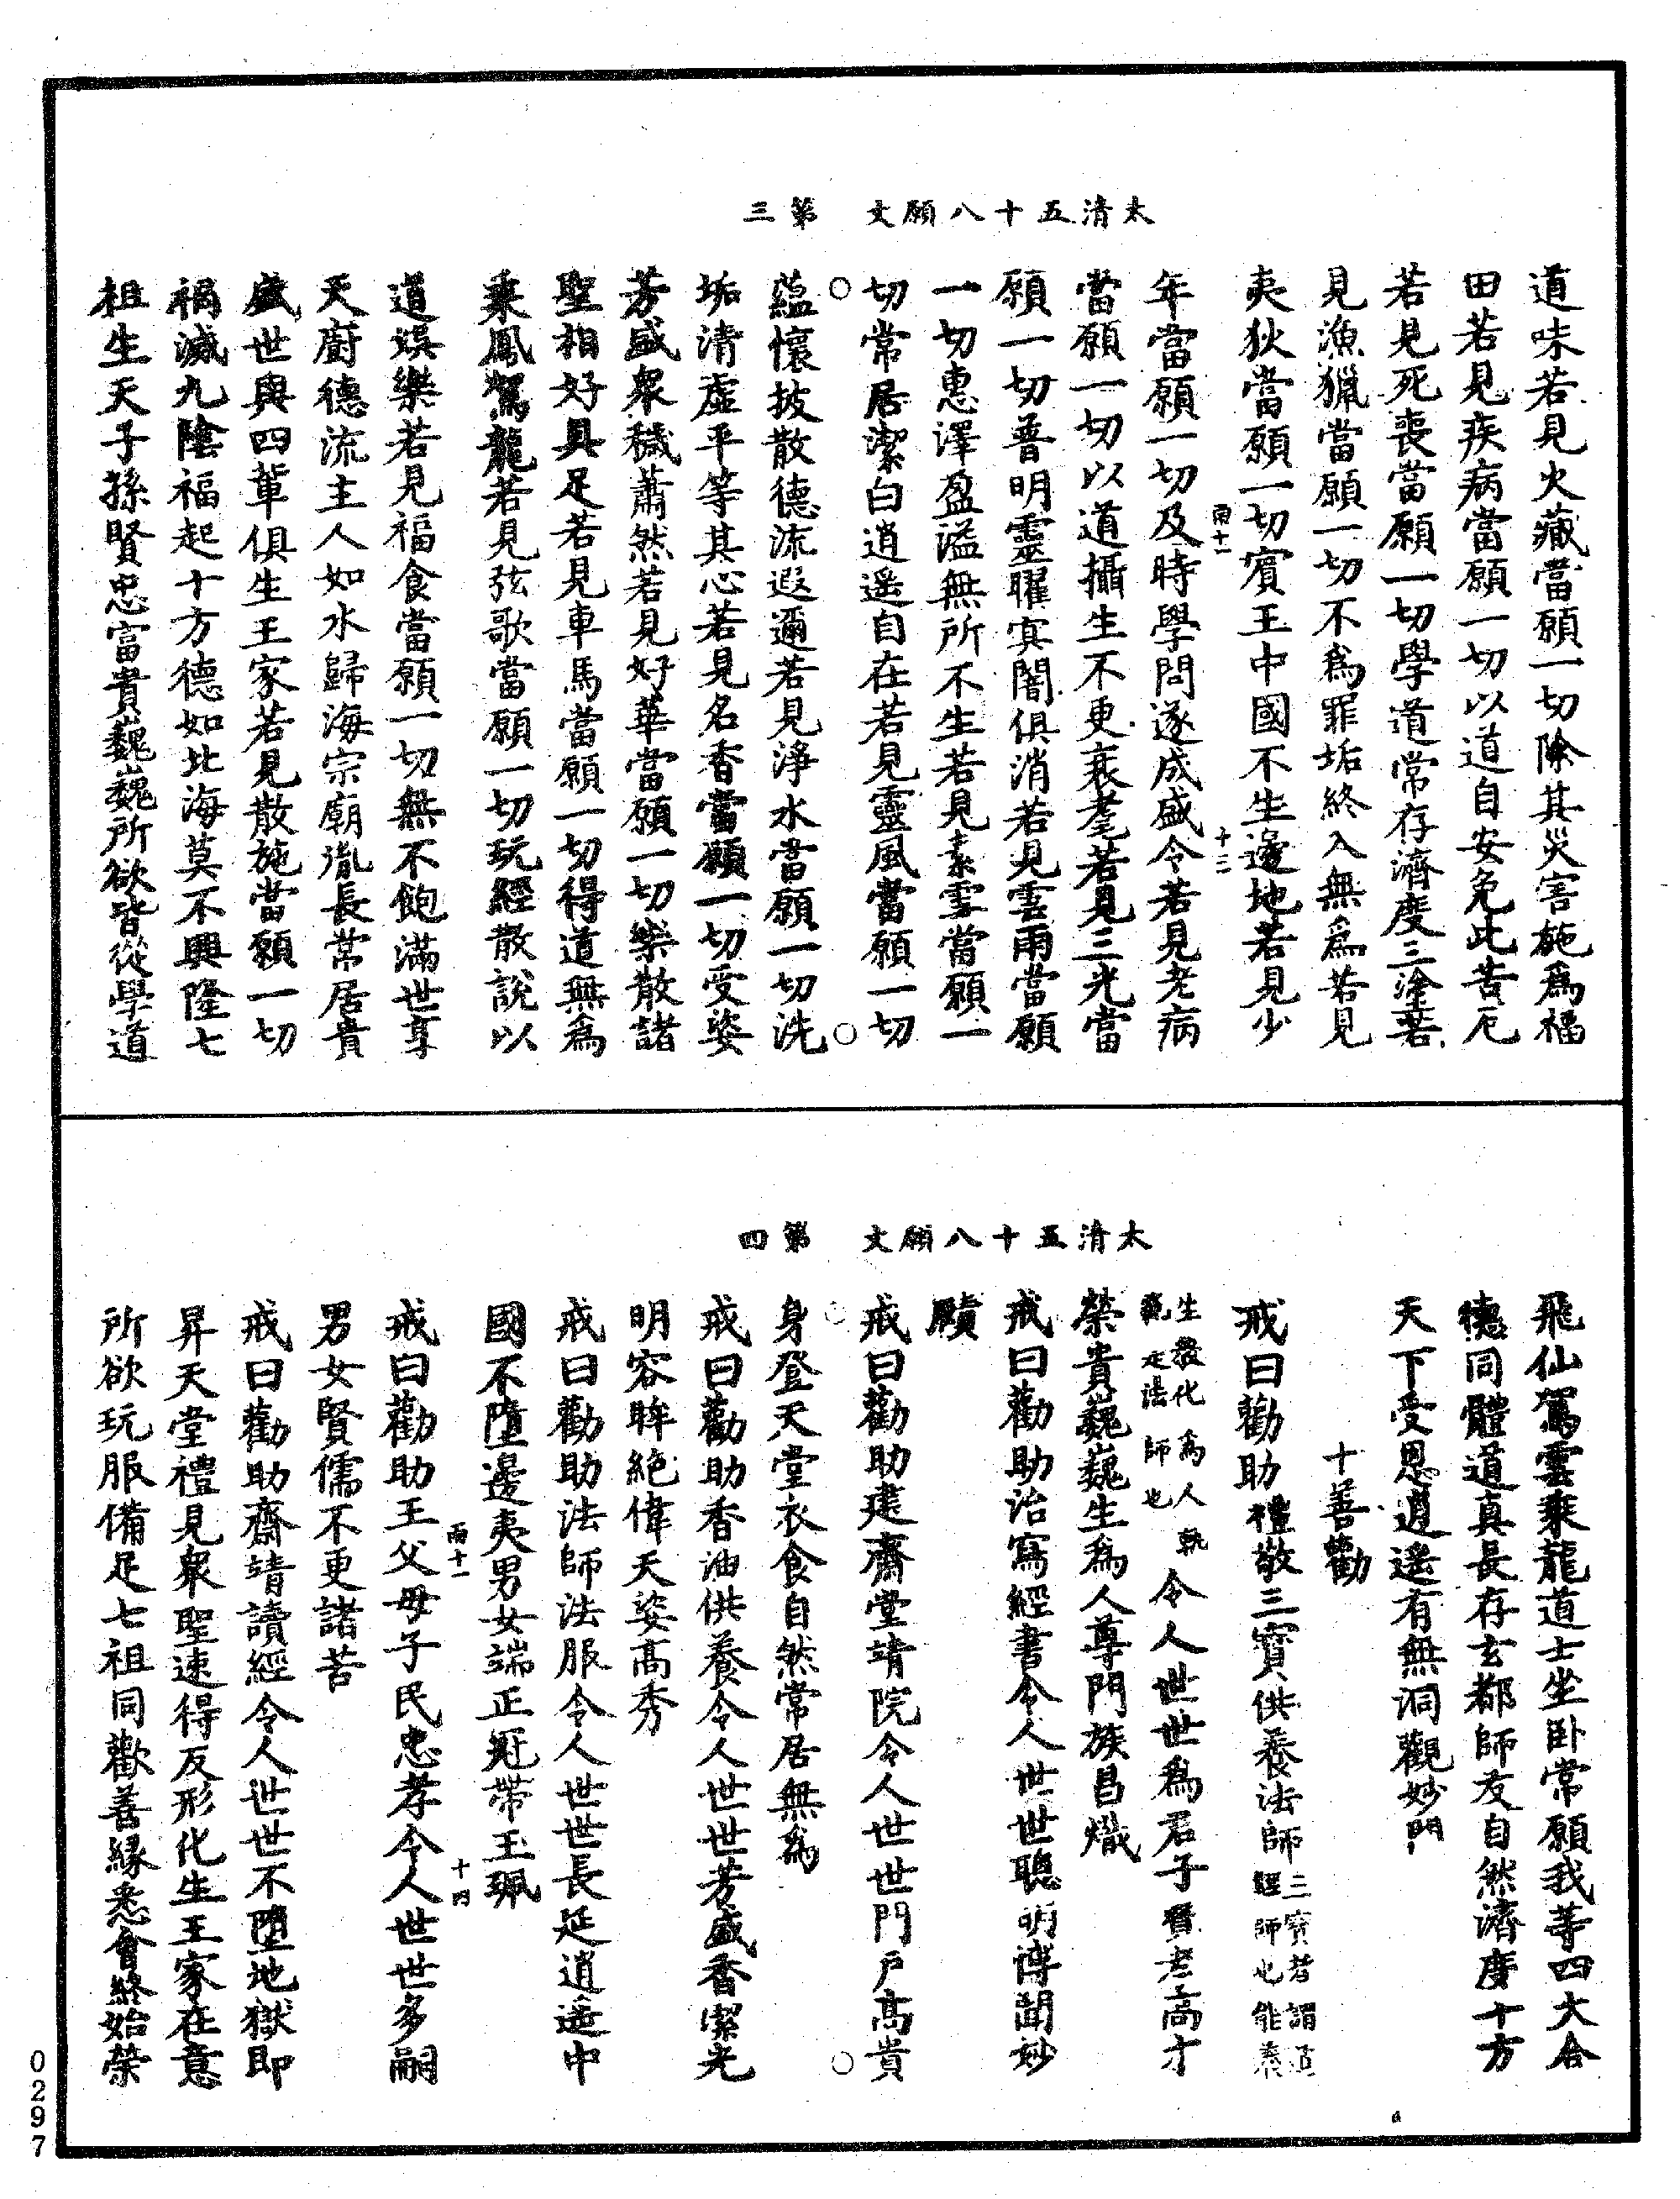 太清五十八願文　第三
道味若見火藏當願一切除其災害施爲福
田若見疾病當願一切以道自安免此苦厄
若見死喪當願一切學道常存濟度三塗若
見漁獵當願一切不爲罪垢終入無爲若見
夷狄當願一切賓王中國不生邊地若見少
雨十一
十三
年當願一切及時學問遂成盛令若見老病
當願一切以道攝生不更衰耄若見三光當
願一切普明靈曜冥闇俱消若見雲雨當願
一切惠澤盈溢無所不生若見素雪當願一
切常居潔白逍遥自在若見靈風當願一切
蘊懷披散德流遐邇若見淨水當願一切洗
垢清虛平等其心若見名香當願一切受姿
芳盛衆穢蕭然若見好華當願一切樂散諸
聖相好具足若見車馬當願一切得道無爲
乘鳳駕龍若見弦歌當願一切玩經散說以
道娱樂若見福食當願一切無不飽滿世享
天廚德流主人如水歸海宗廟胤長常居貴
盛世與四輩俱生王家若見散施當願一切
禍滅九陰福起十方德如比海莫不興隆七
祖生天子孫賢忠富貴巍巍所欲皆從學道
太清五十八願文　第四
飛仙駕雲乘龍道士坐卧常願我等四大合
德同體道真長存玄都師友自然濟度十方
天下受恩逍遥有無洞觀妙門
十善勸
戒曰勸助禮敬三寶供養法師三寶者謂道
經師也能養
生教化爲人執
範定法師也令人世世爲君子賢孝高才
榮貴巍巍生爲人尊門族昌熾
戒曰勸助治寫經書令人世世聰明博聞妙
賾
戒曰勸助建齋堂靖院令人世世門戶高貴
身登天堂衣食自然常居無爲
戒曰勸助香油供養令人世世芳盛香潔光
明容眸絶偉天姿高秀
戒曰勸助法師法服令人世世長延逍遥中
國不墮邊夷男女端正冠帶玉珮
雨十一
十四
戒曰勸助王父母子民忠孝令人世世多嗣
男女賢儒不更諸苦
戒曰勸助齋靖讀經令人世世不墮地獄即
昇天堂禮見衆聖速得反形化生王家在意
所欲玩服備足七祖同歡善緣悉會終始榮
0297